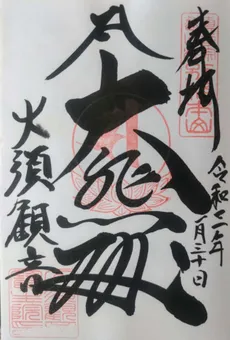 奉拝
令和二年
一月三十日
大悲殿
大須観音